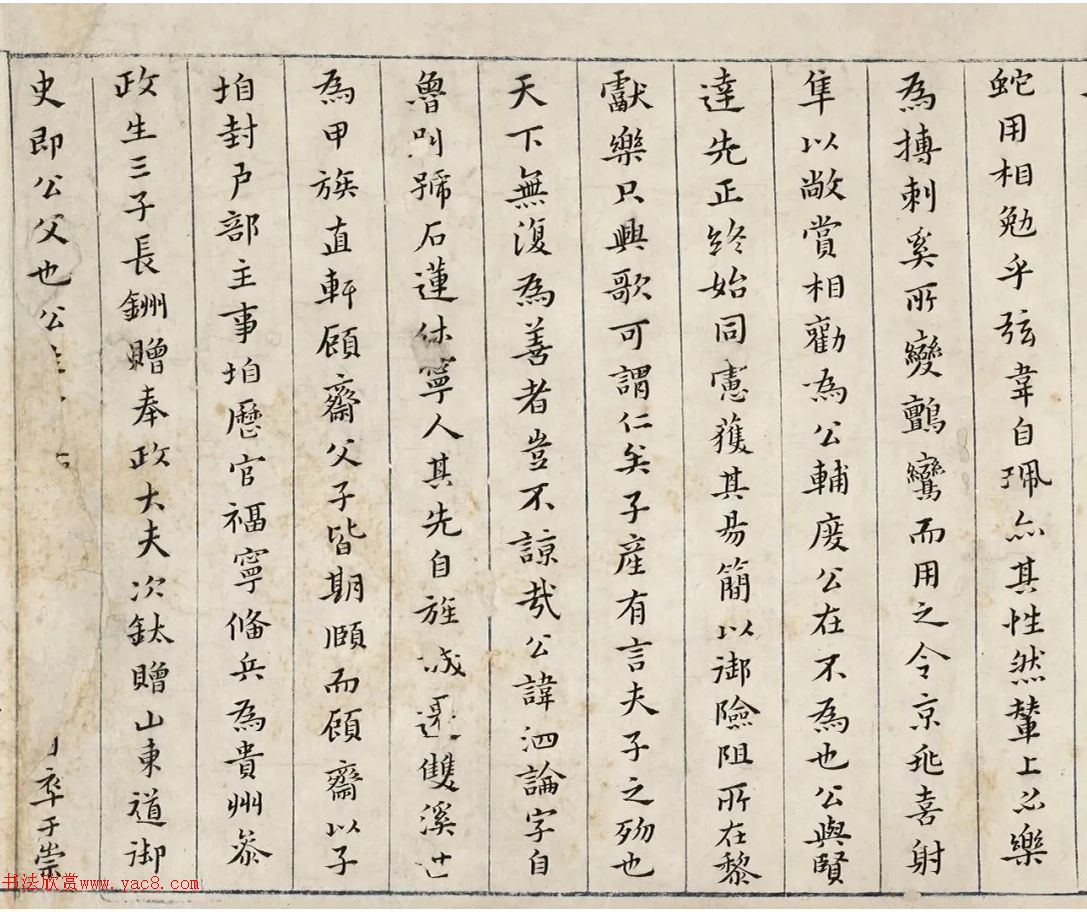 蛇用相勉乎弦韋自珮亦其性然輦上必樂
為摶刺奚所變鸇鸞而用之令京兆喜射
隼以敞賞相勸為公輔廢公在不為也公與賢
達先正終始同憲獲其易簡以御險阻所在黎
獻樂只興歌可謂仁矣子產有言夫子之歾也
天下無復為善者豈不諒哉公諱泗論字自
魯叫號石蓮休寧人其先自旌城遷雙溪世
為甲族直軒顧齋父子皆期頤而顧齋以子
垍封户部主事垍歷官福寧俻兵為貴州叅
政生三子長鉶贈奉政大夫次鈦贈山東道御
史即公父也公
卒于崇
书法欣赏www.yac8.com